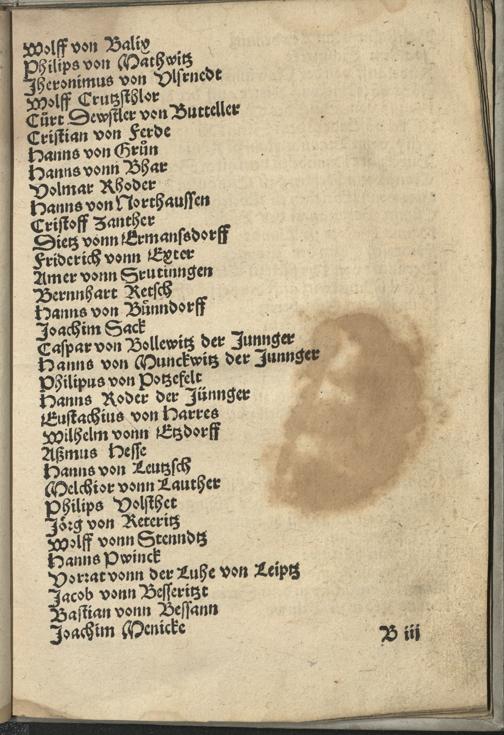 Wolff von Baliv
Philips von Mathwitz
Jheronimus von Vlsrnedt
Wolff Crutzsthlor
Cůrt Dewstler von Butteller
Cristian von Ferde
Hanns von Grůn
Hanns vonn Bhar
Volmar Rhoder
Hanns von Northaussen
Cristoff Zanther
Dietz vonn Ermansdorff
Friderich vonn Exter
Amer vonn Srutinngen
Bernnhart Retsch
Hanns von Bůnndorff
Joachim Sack
Caspar von Bollewitz der Junnger
Hanns von Munckwitz der Junnger
Philipus von Potzefelt
Hanns Roder der Jůnnger
Eustachius von Harres
Wilhelm vonn Etzdorff
Aßmus Hesse
Hanns von Leutzsch
Melchior vonn Lauther
Philips Volsthet
Jörg von Reteritz
Wolff vonn Stenndtz
Hanns Pwinck
Vorrat vonn der Luhe von Leiptz
Jacob vonn Besseritzt
Bastian vonn Bessann
Joachim Menicke
B iii